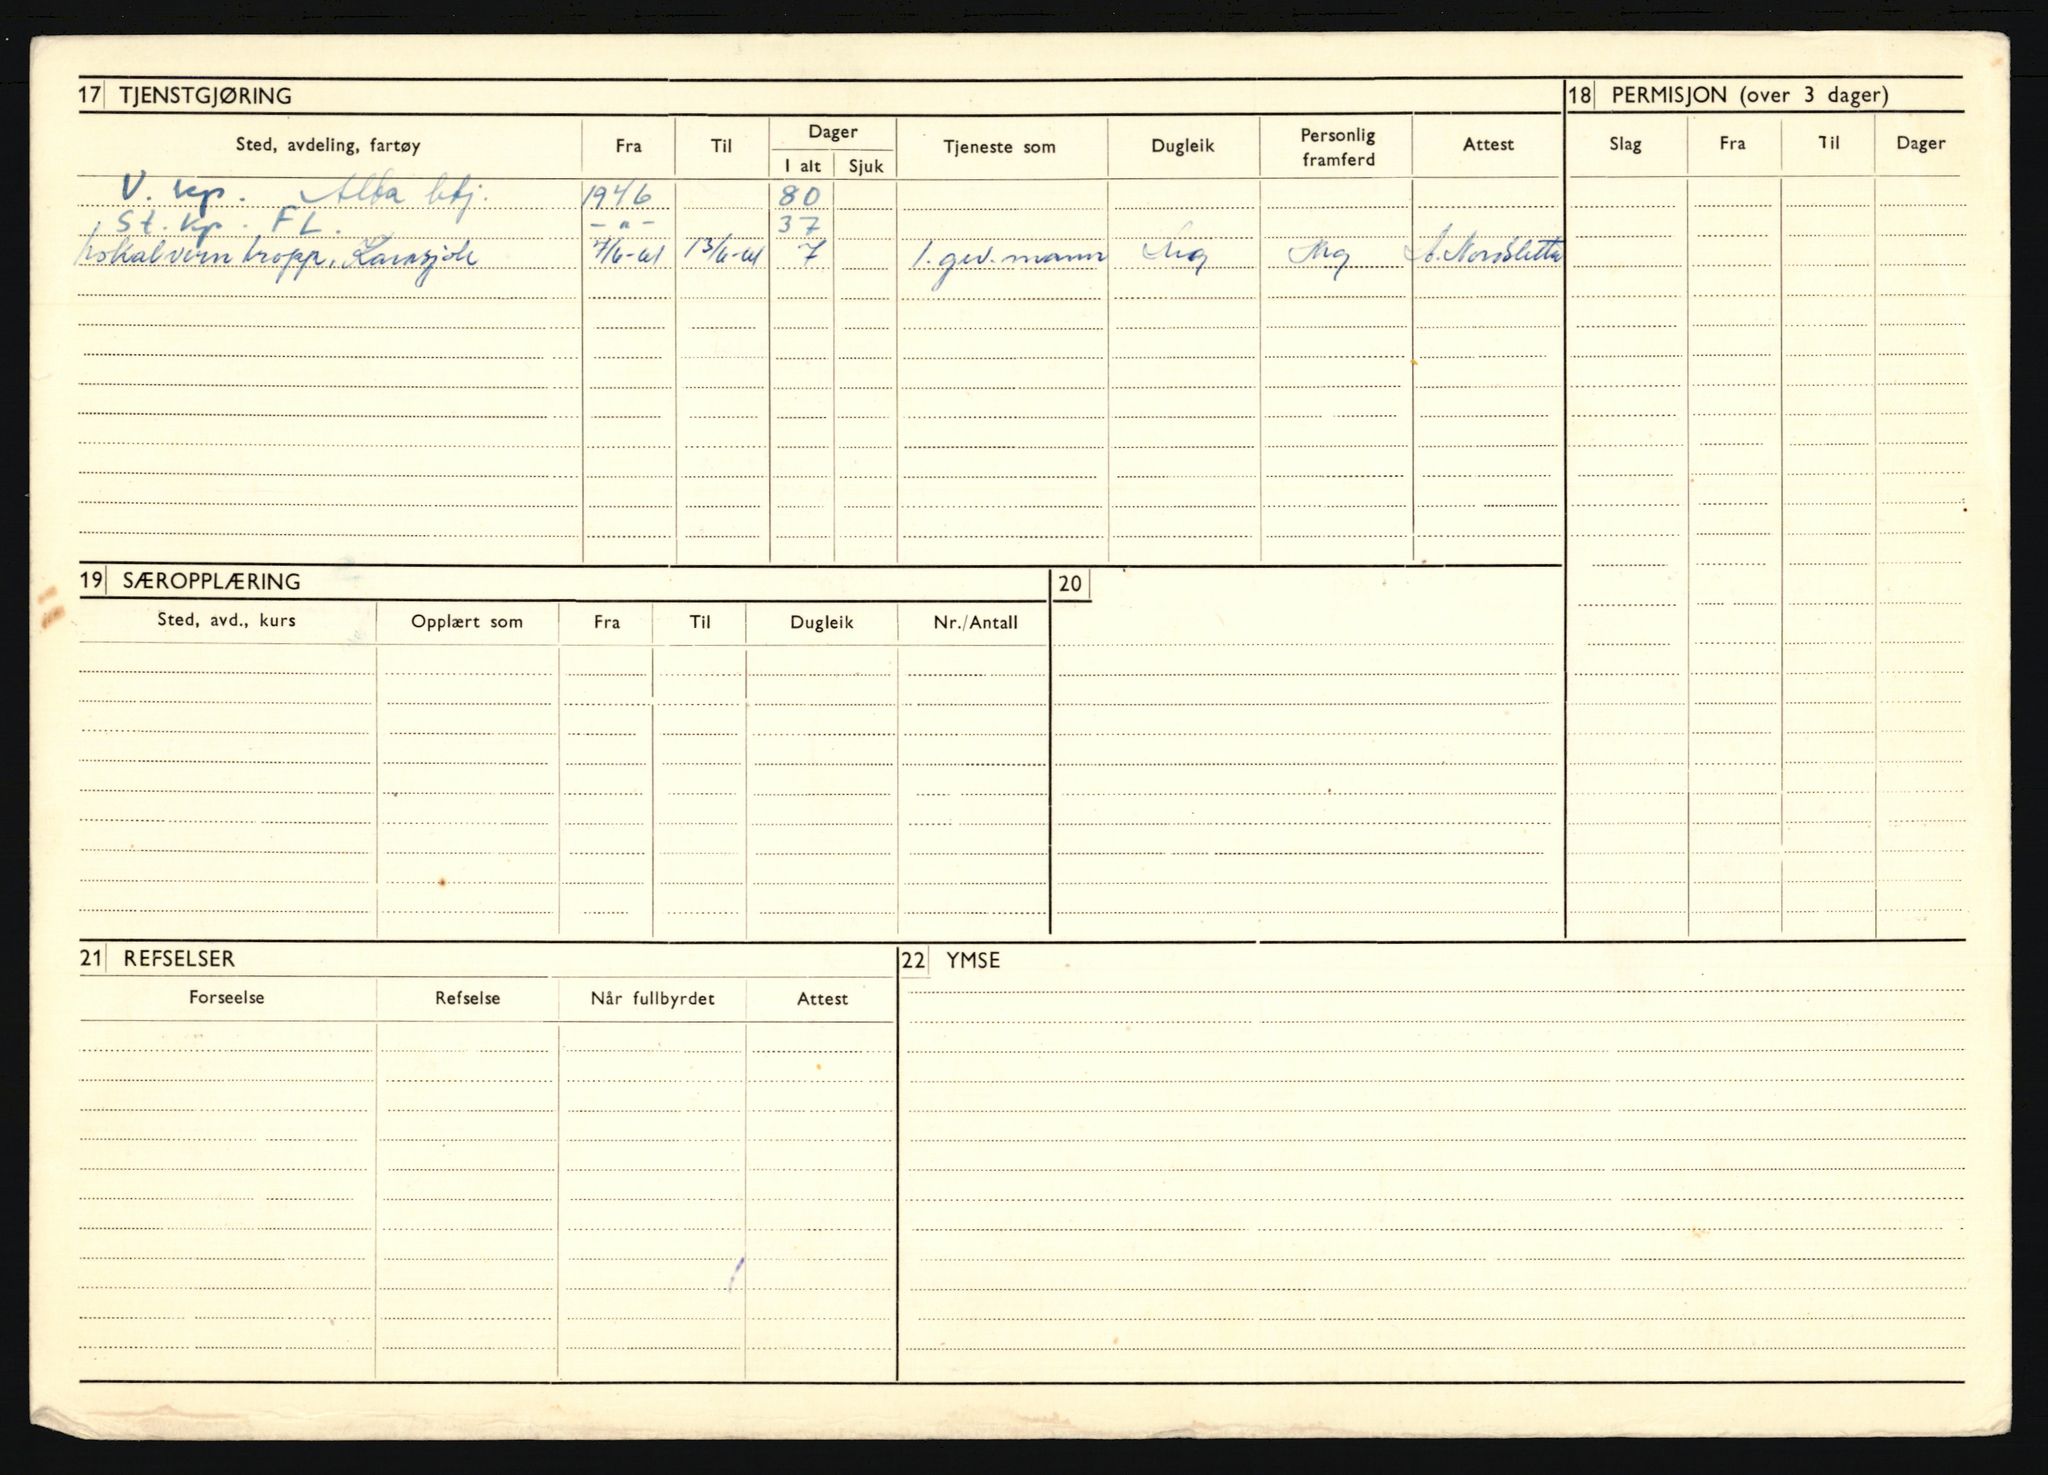 17 TJENSTGJØRING
18 PERMISJON (over 3 dager)
Sted, avdeling, fartøy Fra Til Dager Tjeneste som Dugleik Personlig framferd Attest Slag Fra Til Dager
I alt Sjuk
V. kp. Alta btj. 1946 80
St. kp. FL. -"- 37
Lokalvern tropp, Karasjok 7/6-61 13/6-61 7 1. gev. mann Mg Mg A. Nordsletta
19 SÆROPPLÆRING
20
Sted, avd., kurs Opplært som Fra Til Dugleik Nr./Antall
21 REFSELSER
22 YMSE
Forseelse Refselse Når fullbyrdet Attest